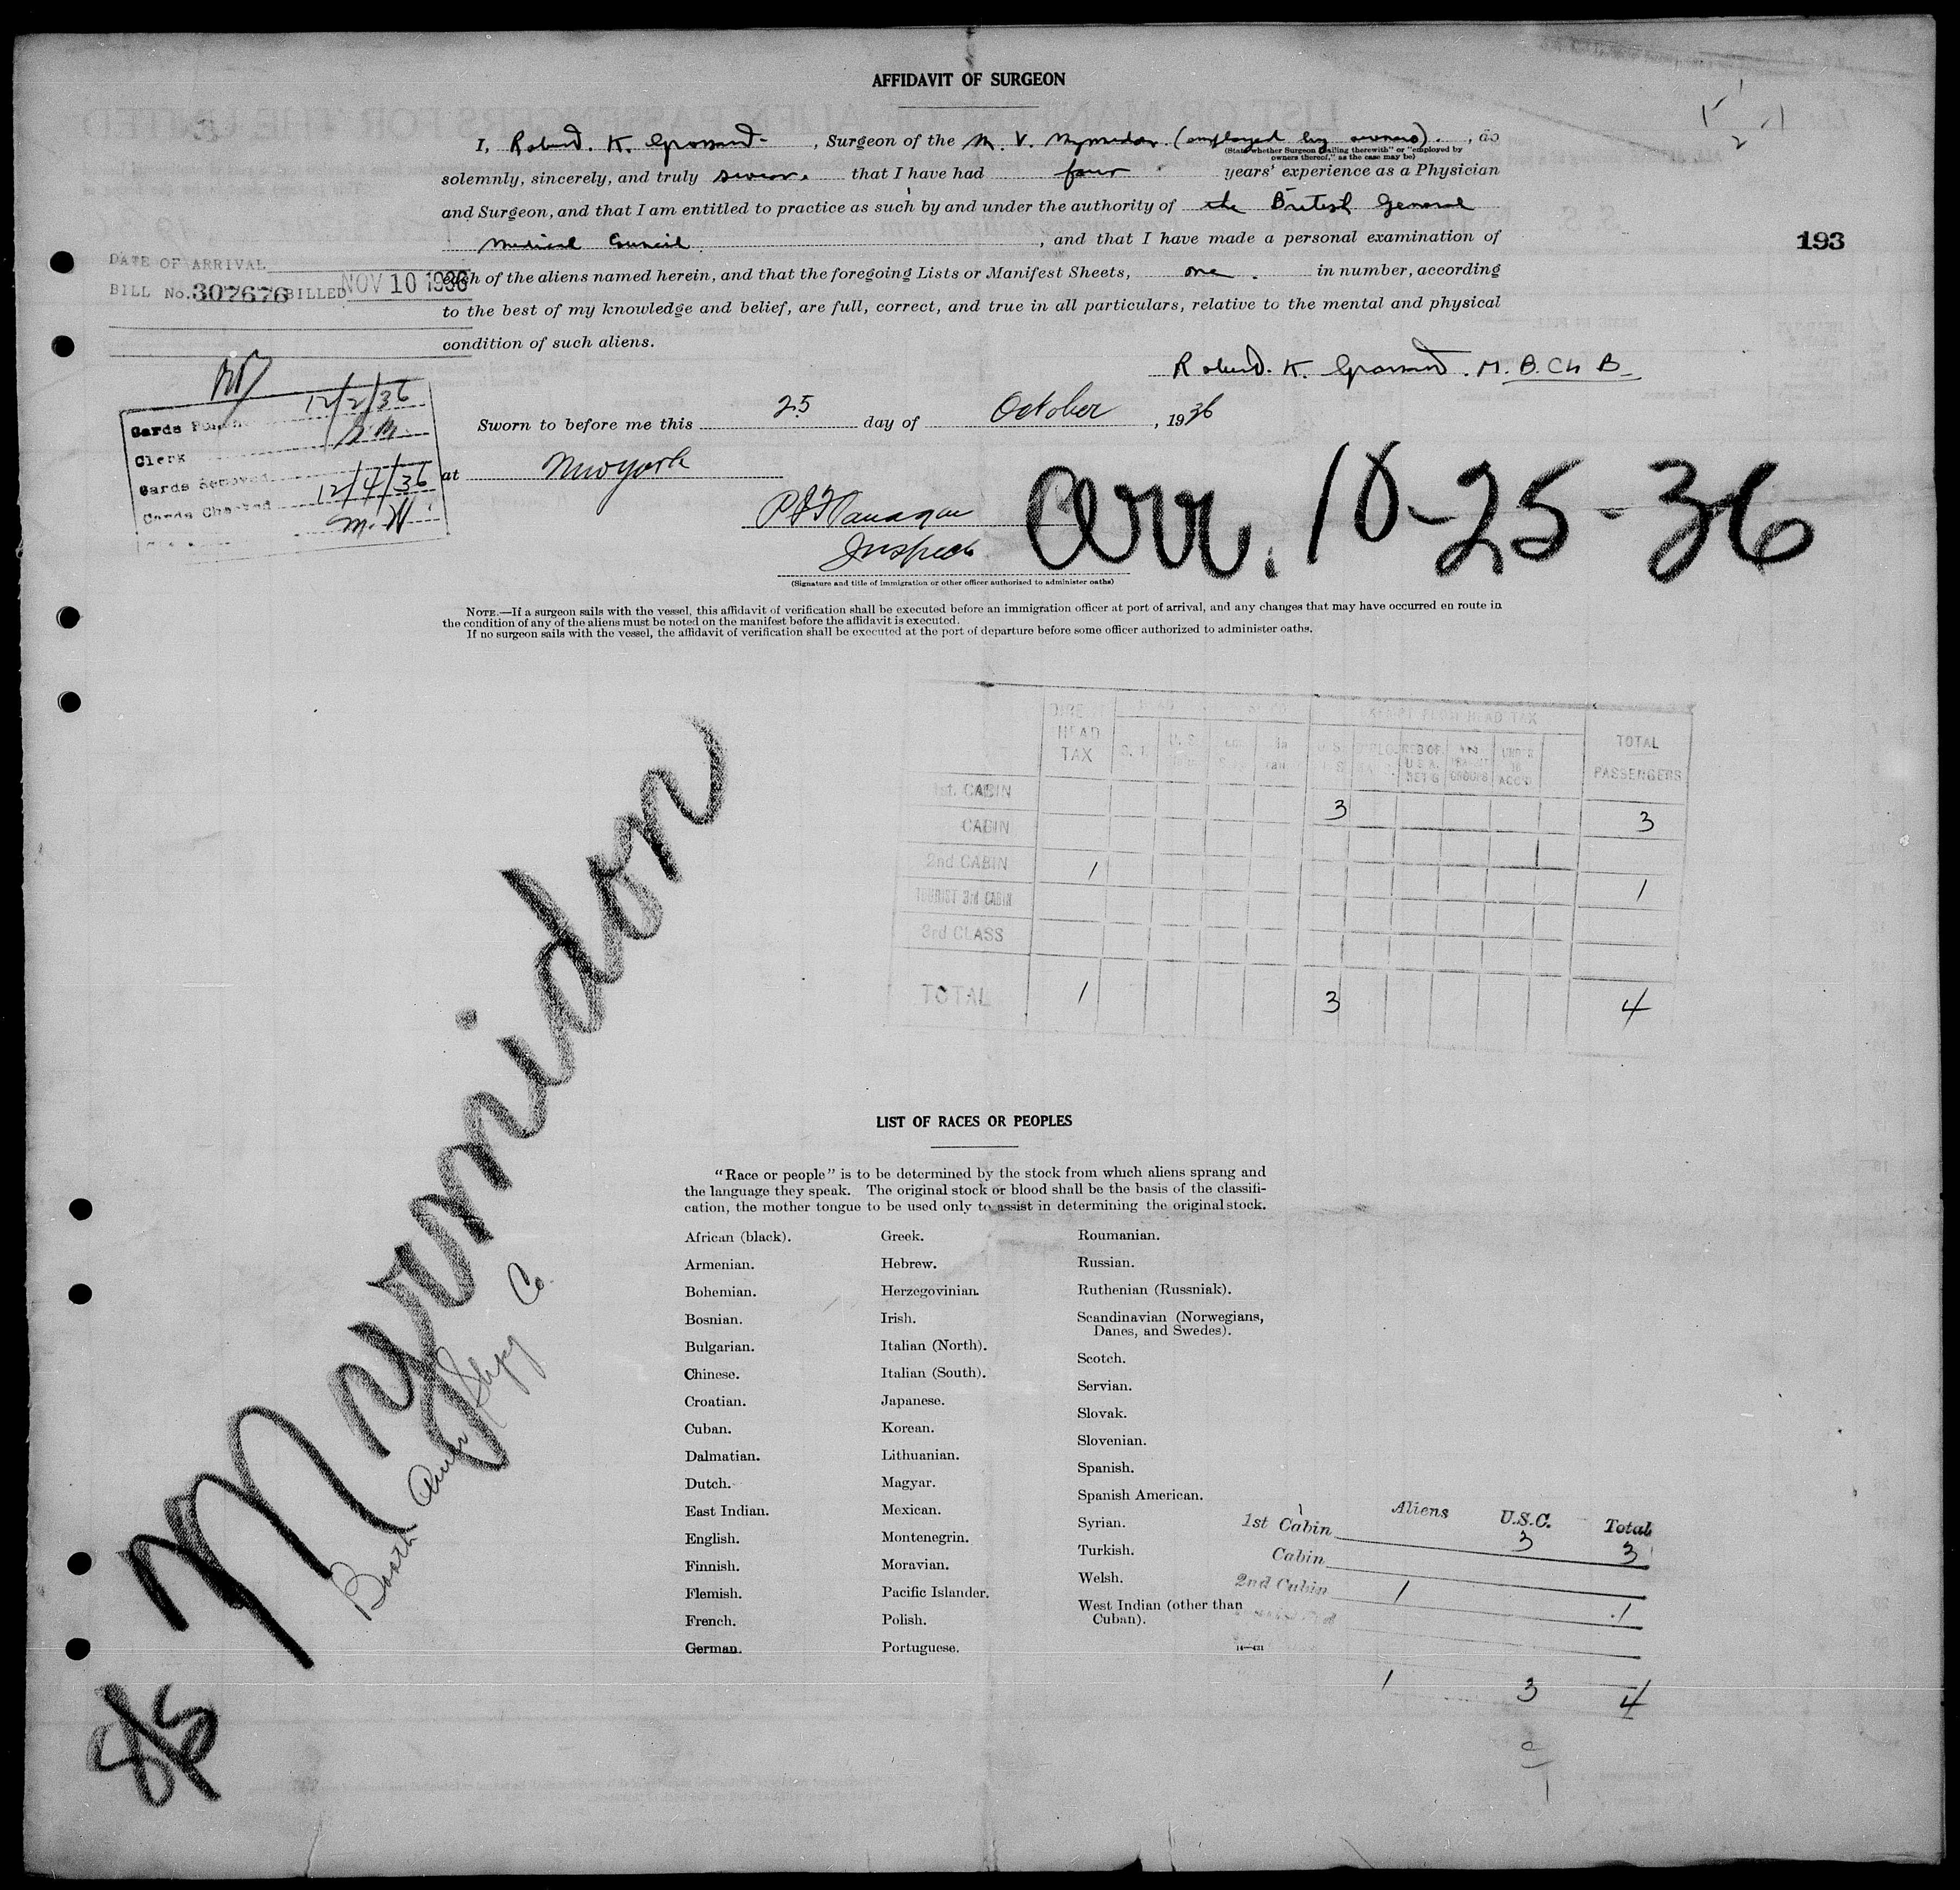 AFFIDAVIT OF SURGEON
I, Robert. K. , Surgeon of the M. V. Myrmidon. (employed by owners). , do
(State whether Surgeon "sailing therewith" or "employed by
owners thereof," as the case may be)
solemnly, sincerely, and truly swear. that I have had four years' experience as a Physician
and Surgeon, and that I am entitled to practice as such by and under the authority of the British General
Medical Council , and that I have made a personal examination of
193
DATE OF ARRIVAL
BILL No. 307676 BILLED NOV 10 1936
each of the aliens named herein, and that the foregoing Lists or Manifest Sheets, one . in number, according
to the best of my knowledge and belief, are full, correct, and true in all particulars, relative to the mental and physical
condition of such aliens.
Robert. K. . M. B. Ch B.
Cards 12/2/36
Clerk
Cards Removed
Cards Checked 12/4/36
M. H.
Sworn to before me this 25 day of October , 1936
at New York
Arr. 10-25-36
Inspector
(Signature and title of immigration or other officer authorized to administer oaths)
NOTE.—If a surgeon sails with the vessel, this affidavit of verification shall be executed before an immigration officer at port of arrival, and any changes that may have occurred en route in
the condition of any of the aliens must be noted on the manifest before the affidavit is executed.
If no surgeon sails with the vessel, the affidavit of verification shall be executed at the port of departure before some officer authorized to administer oaths.
DIRECT HEAD TAX
EXEMPT FROM HEAD TAX
TOTAL PASSENGERS
1st. CABIN 3 3
CABIN
2nd CABIN 1 1
TOURIST 3rd CABIN
3rd CLASS
TOTAL 1 3 4
Myrmidon
Booth Amer Shipg Co.
LIST OF RACES OR PEOPLES
"Race or people" is to be determined by the stock from which aliens sprang and
the language they speak. The original stock or blood shall be the basis of the classifi-
cation, the mother tongue to be used only to assist in determining the original stock.
African (black).
Armenian.
Bohemian.
Bosnian.
Bulgarian.
Chinese.
Croatian.
Cuban.
Dalmatian.
Dutch.
East Indian.
English.
Finnish.
Flemish.
French.
German.
Greek.
Hebrew.
Herzegovinian.
Irish.
Italian (North).
Italian (South).
Japanese.
Korean.
Lithuanian.
Magyar.
Mexican.
Montenegrin.
Moravian.
Pacific Islander.
Polish.
Portuguese.
Roumanian.
Russian.
Ruthenian (Russniak).
Scandinavian (Norwegians,
Danes, and Swedes).
Scotch.
Servian.
Slovak.
Slovenian.
Spanish.
Spanish American.
Syrian.
Turkish.
Welsh.
West Indian (other than
Cuban).
14—431
Aliens U.S.C. Total
1st Cabin 3 3
Cabin
2nd Cabin 1 1
1 3 4